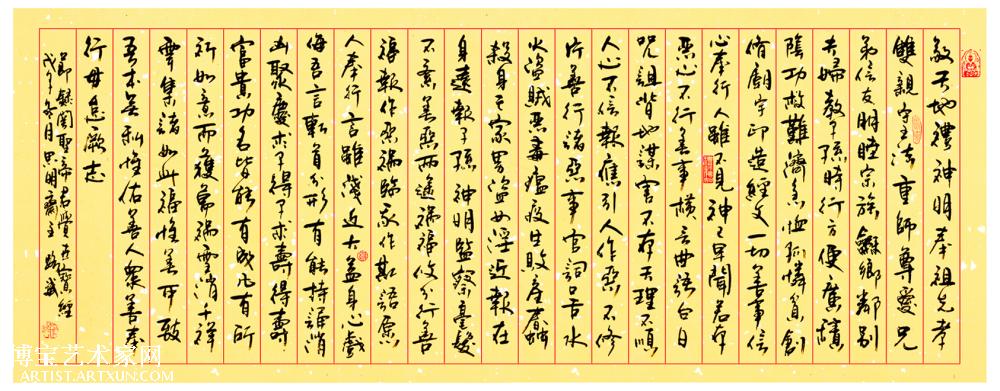 敬天地禮神明奉祖先孝
雙親守王法重師尊愛兄
弟信友朋睦宗族龢鄉鄰別
夫婦教子孫時行方便廣積
陰功救難濟急恤孤憐貧創
脩廟宇印造經文一切善事信
心奉行人雖不見神已早聞若存
惡心不行善事橫言曲語白日
咒詛背地謀害不存天理不順
人心不信報應引人作惡不修
片善行諸惡事官詞口舌水
火盜賊惡毒瘟疫生敗產蠢
殺身亡家男盜女淫近報在
身遠報子孫神明監察毫髮
不紊善惡兩途禍福攸分行善
福報作惡禍臨我作斯語願
人奉行言雖淺近大益身心戲
侮吾言斬首分形有能持誦消
凶聚慶求子得子求壽得壽
富貴功名皆能有成凡有所
祈如意而獲萬禍雪消千祥
雲集諸如此福惟善可致
吾本無私惟佑善人眾善奉
行毋怠厥志
節錄關聖帝君覺世寶經
戊子冬月思明齋主
博宝艺术家网
ARTIST.ARTXUN.COM